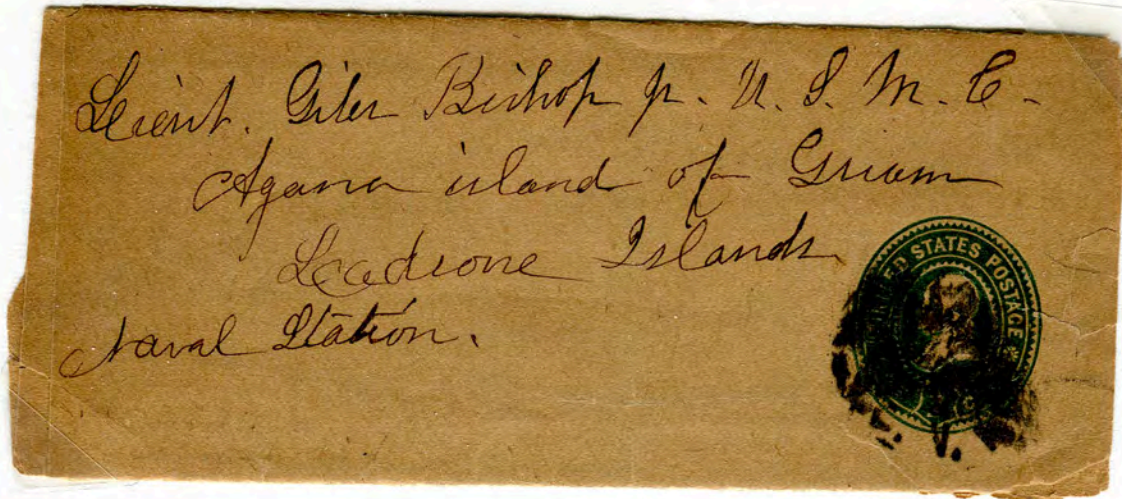 Lieut. Giles Bishop jr. U. S. M. C.
Agana island of Guam
Ladrone Islands
Naval Station.
UNITED STATES POSTAGE